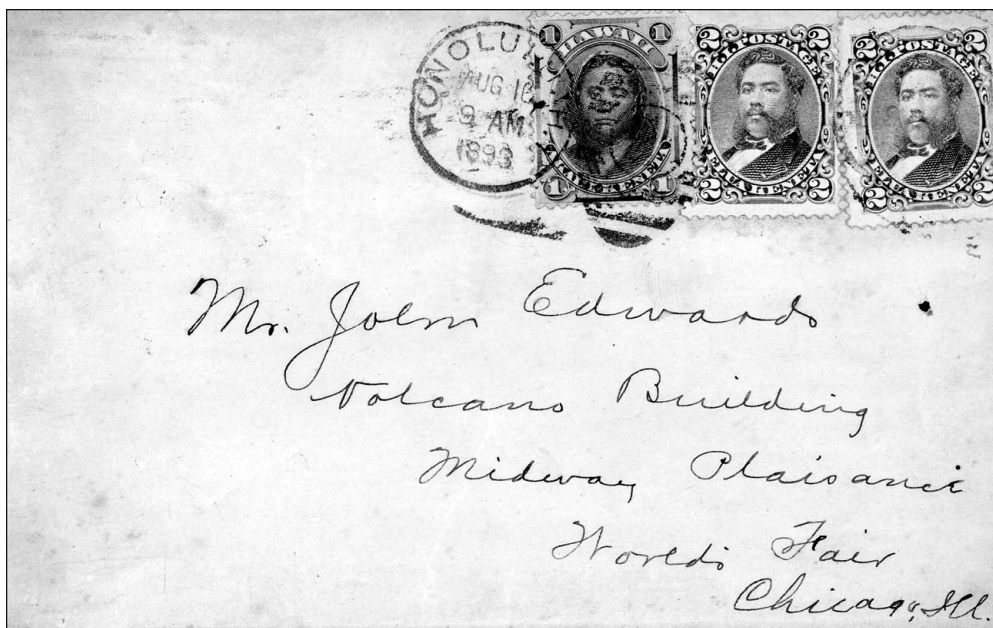 HONOLULU
AUG 16
9 AM
1893
1 HAWAII 1
1 AKAHI KENETA 1
2 H.I. POSTAGE 2
2 ELUA KENETA 2
2 H.I. POSTAGE 2
2 ELUA KENETA 2
Mr. John Edwards
Volcano Building
Midway Plaisance
Worlds Fair
Chicago, Ill.